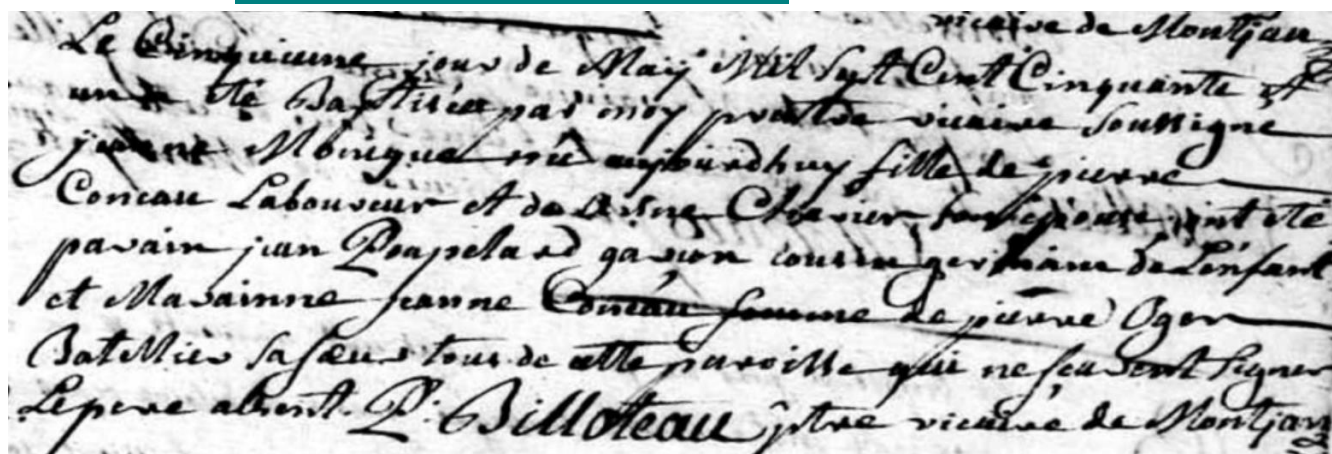 vicaire de Montjan
Le Cinquieme jour de May Mil Sept Cent Cinquante et
un a été Baptisée par moy prêtre vicaire soussigné
jeanne Monique née aujourdhuy fille de pierre
Conceau Laboureur et de Chevrier son epouse ont été
parain jean Poapelard garcon cousin germain de L'enfant
et Marainne jeanne Conceau femme de pierre Oger
Batellier sa sœur tous de cette paroisse qui ne scavent signer
Le pere absent. P. Billoteau ptre vicaire de Montjan